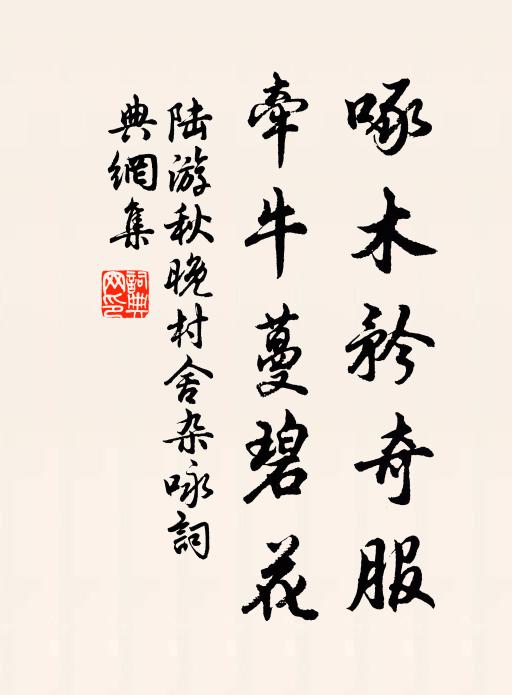 啄木矜奇服
牽牛蔓碧花
陆游秋晚村舍杂咏詞
典網集
詞典網印